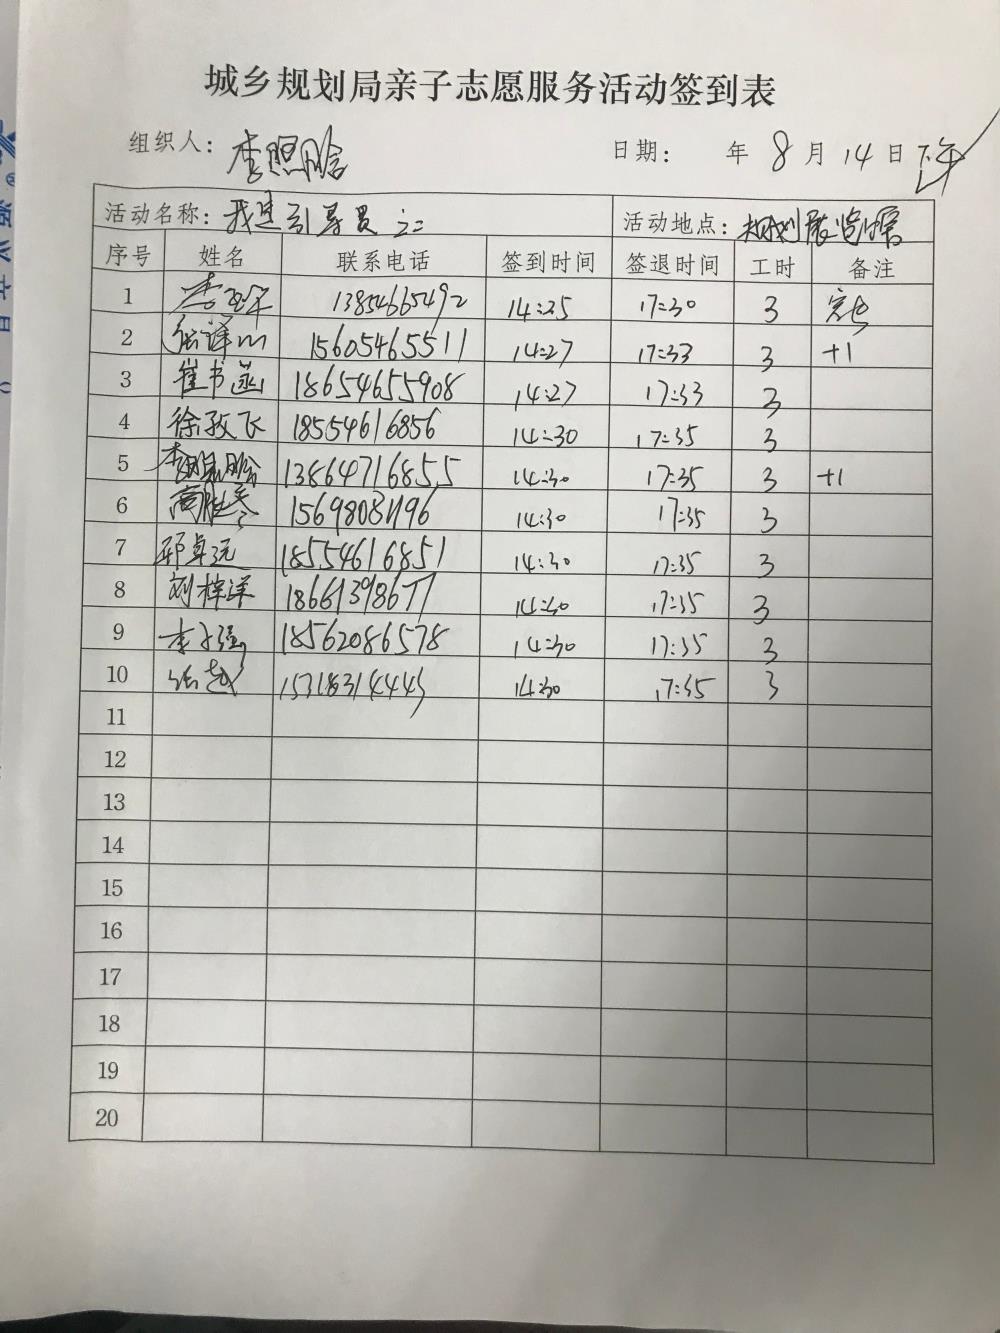 城乡规划局亲子志愿服务活动签到表
组织人：李照晗 日期： 年 8 月 14 日 下午
活动名称：我是引导员 活动地点：规划展览馆
序号 姓名 联系电话 签到时间 签退时间 工时 备注
1 13854665492 14:25 17:30 3
2 15605465511 14:27 17:33 3 +1
3 崔书涵 18654655908 14:27 17:33 3
4 徐致飞 18554616856 14:30 17:35 3
5 李照晗 13864716855 14:30 17:35 3 +1
6 14:30 17:35 3
7 邢卓远 18554616851 14:30 17:35 3
8 刘梓洋 18661398677 14:30 17:35 3
9 李子强 18562086578 14:30 17:35 3
10 张越 14:30 17:35 3
11
12
13
14
15
16
17
18
19
20